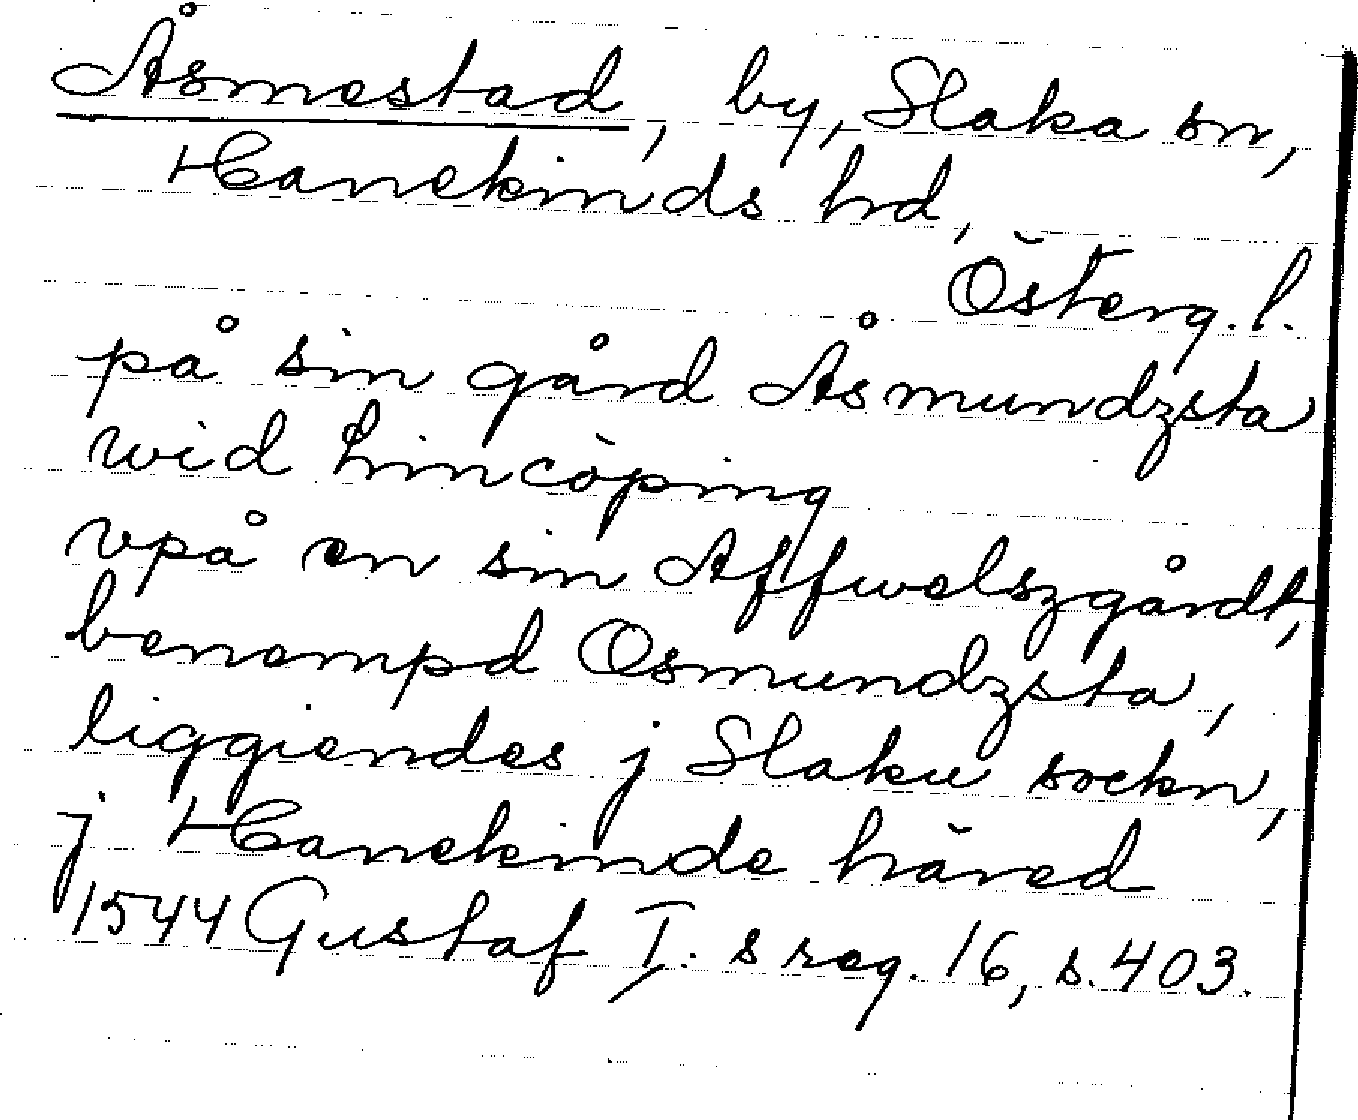 Åsmestad, by, Slaka sn,
Hanekinds hrd,
Österg. l.
på sin gård Åsmundzsta
wid Linköping
vpå en sin Affwelszgårdt,
benempd Osmundzsta,
liggiendes j Slaku sockn,
j Hanekinde häred
1544 Gustaf I. s reg. 16, s. 403.